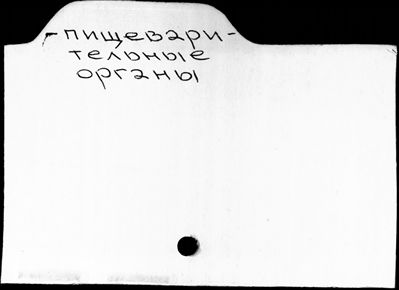 -пищевари-
тельные
органы